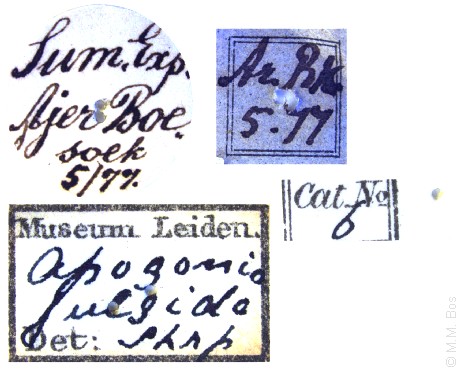 Sum. Exp.
Ajer Boe-
soek
5/77.
Az. Bk.
5.77
Cat. No
6
Museum Leiden.
Apogonia
fulgida
Det: Shrp
© M.M. Bos